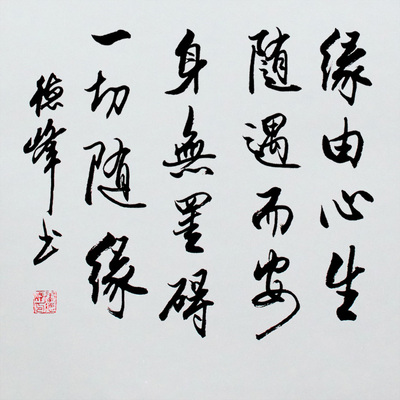 缘由心生
随遇而安
身無罣碍
一切随缘
德峰书